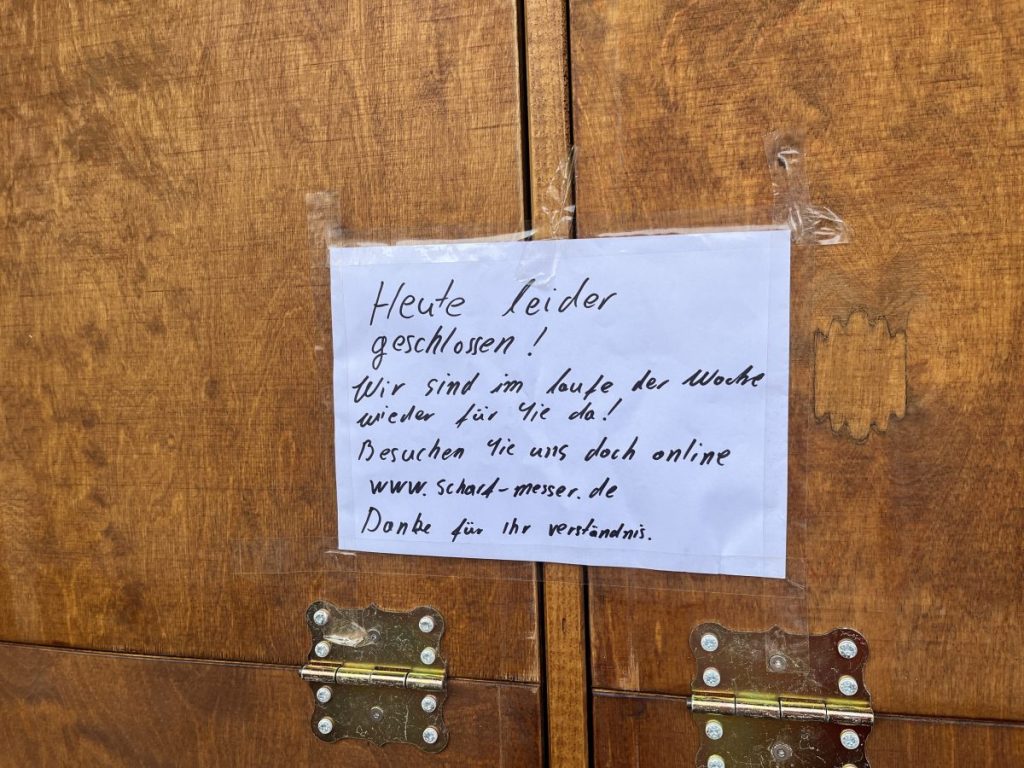 Heute leider
geschlossen!
Wir sind im laufe der Woche
wieder für Sie da!
Besuchen Sie uns doch online
www.scharf-messer.de
Danke für ihr verständnis.